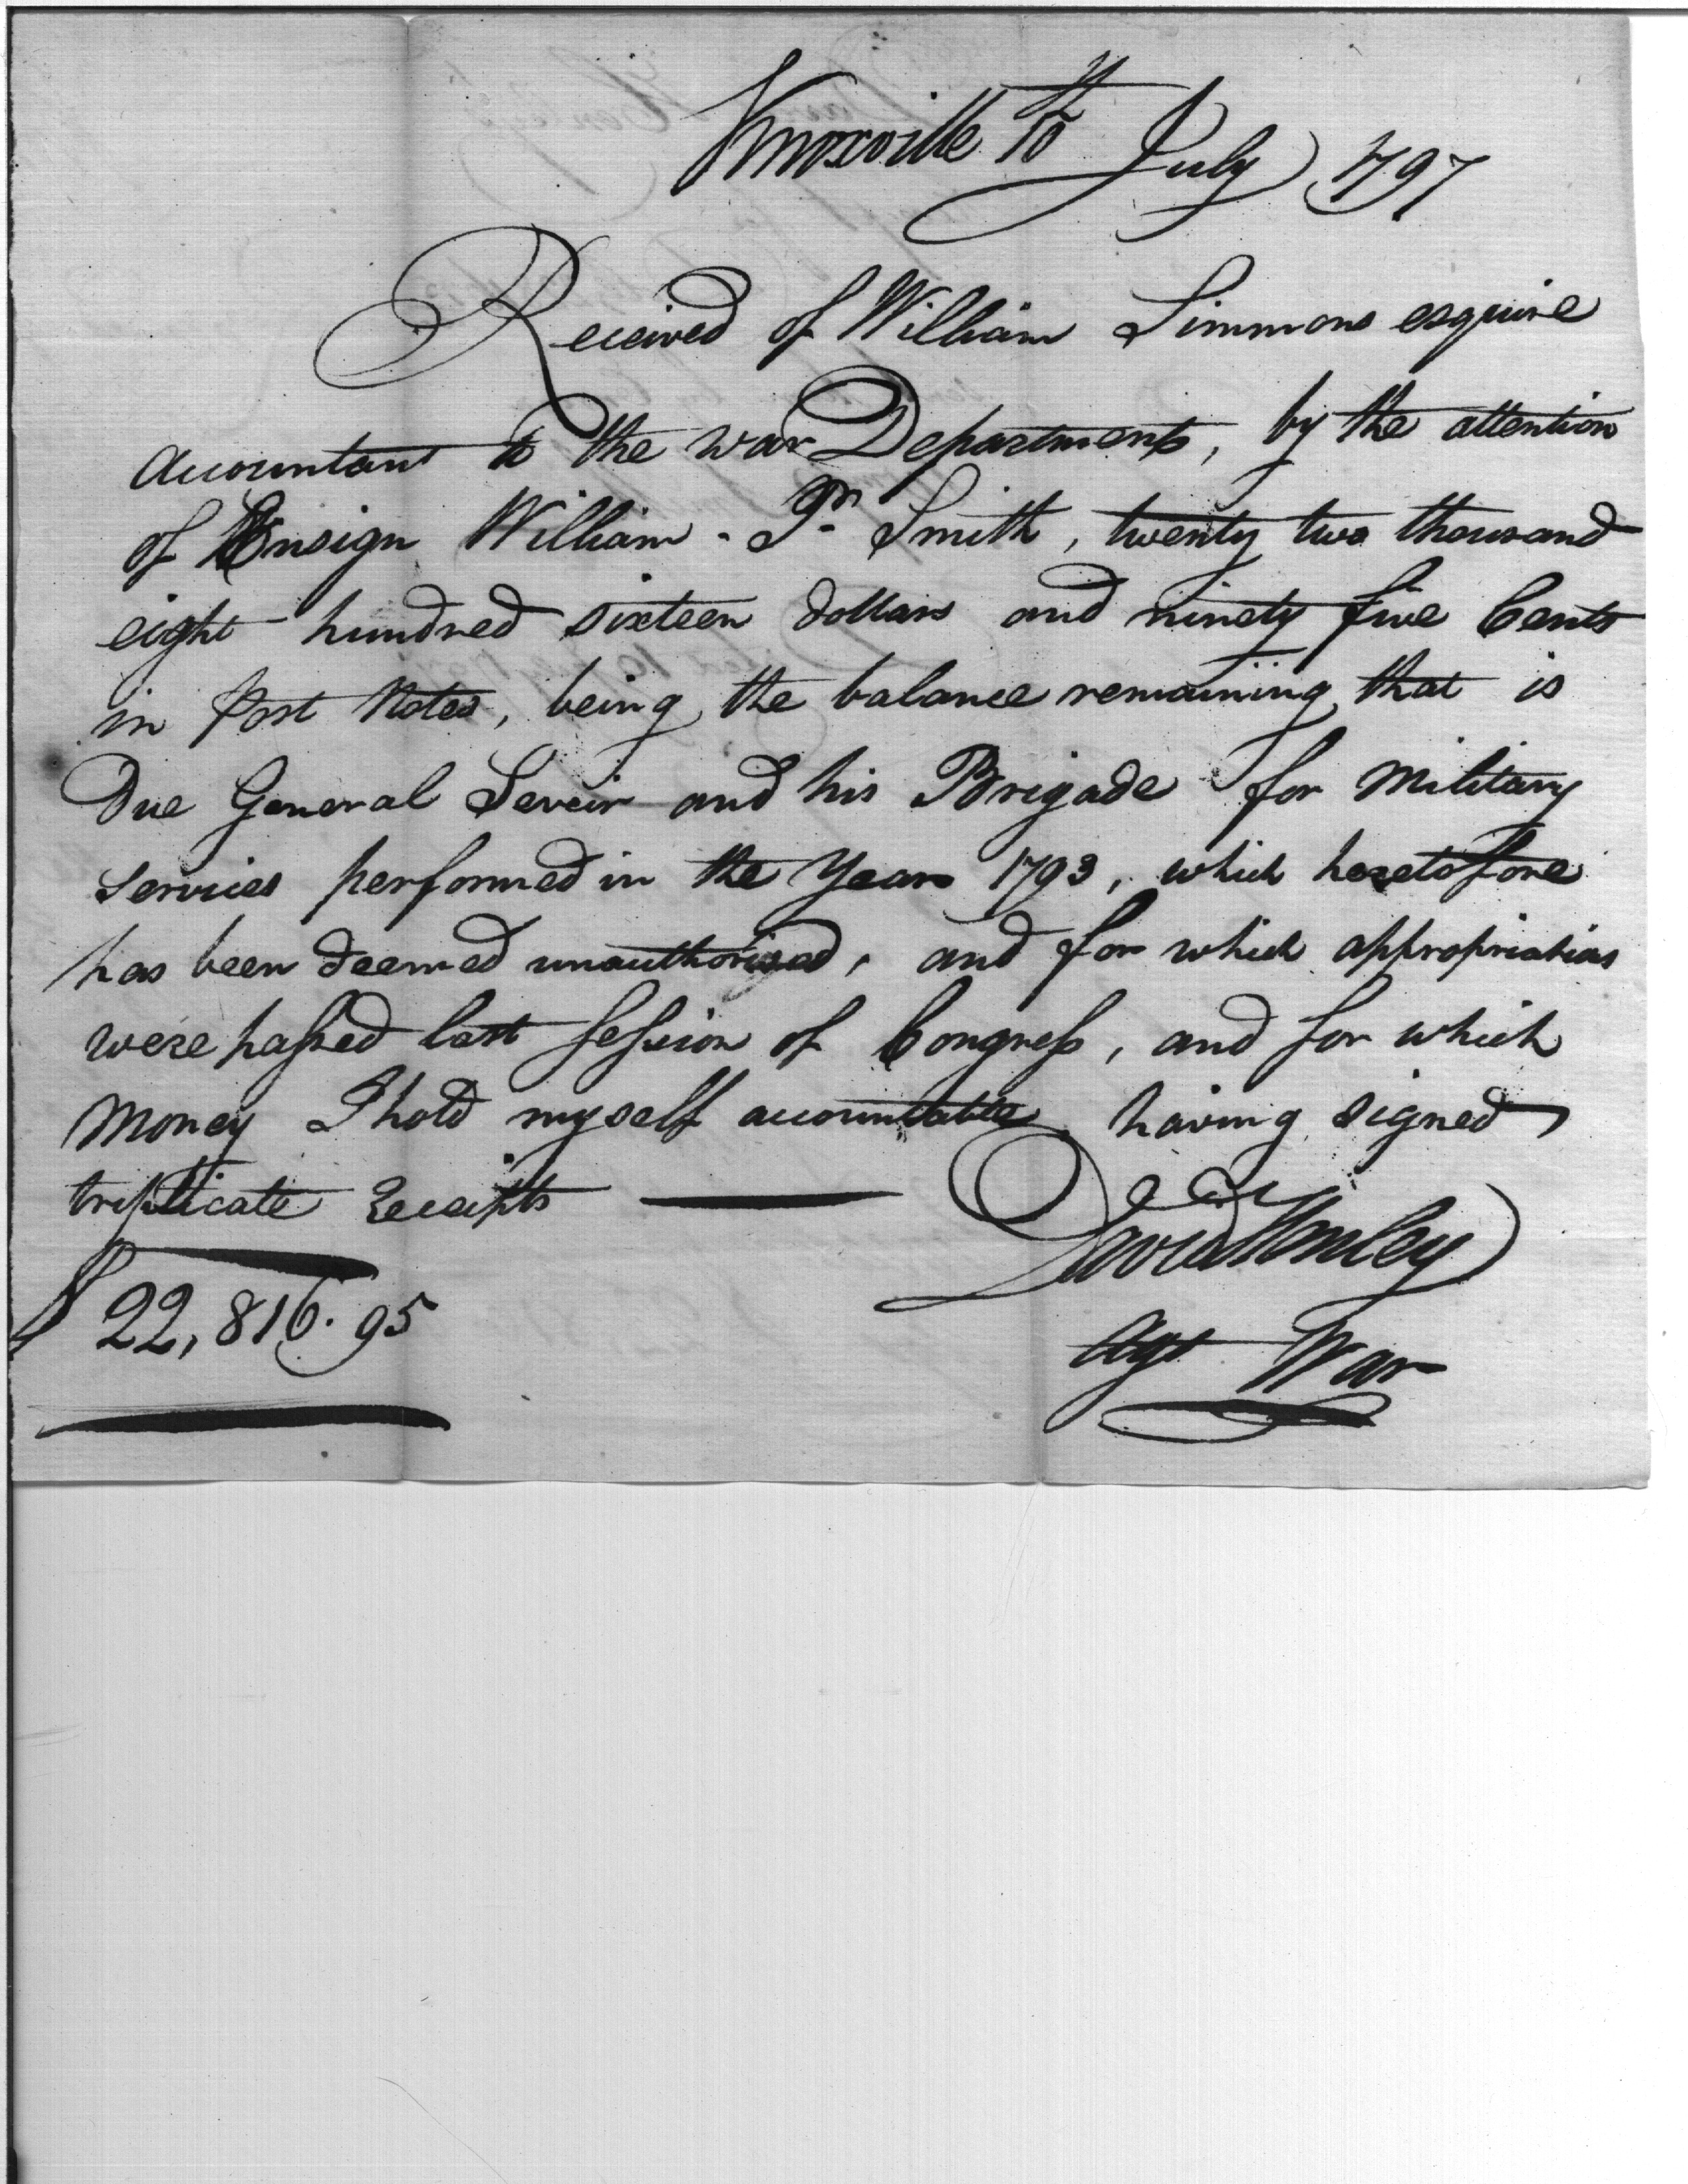 Knoxville 10th July 1797
Received of William Simmons esquire
accountant to the war Department, by the attention
of Ensign William - Pr. Smith, twenty two thousand
eight hundred sixteen dollars and ninety five Cents
in Post Notes, being the balance remaining that is
Due General Seveir and his Brigade for Military
services performed in the Year 1793, which heretofore
has been deemed unauthorised, and for which appropriations
were passed last session of Congress, and for which
Money I hold myself accountable, having signed
triplicate Receipts
David Henley
$ 22,816.95
Agt War